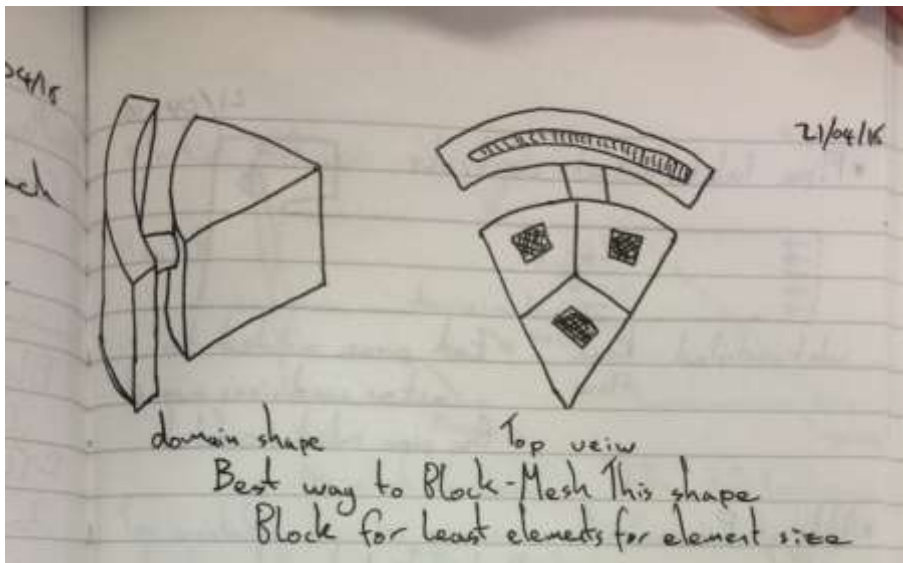 04/16
21/04/16
domain shape
Top veiw
Best way to Block-Mesh This shape
Block for Least elements for element size